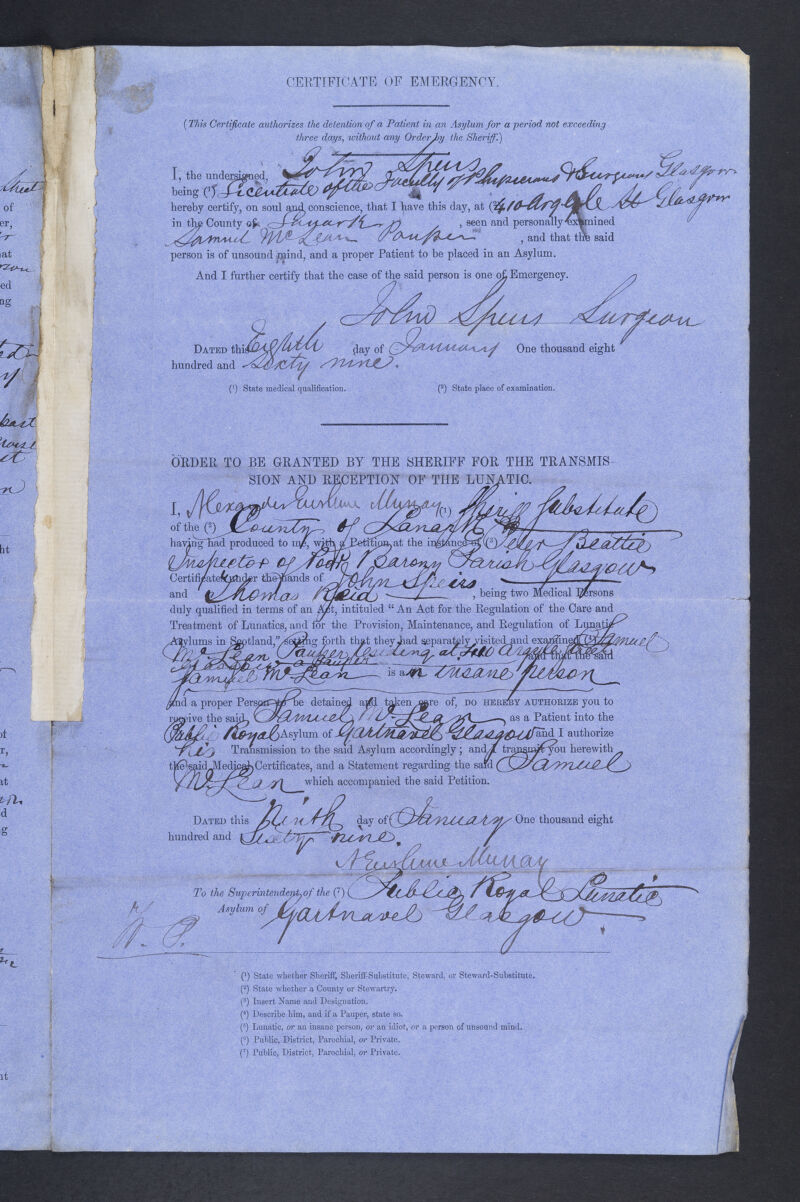 CERTIFICATE OF EMERGENCY.
(This Certificate authorizes the detention of a Patient in an Asylum for a period not exceeding
three days, without any Order by the Sheriff.)
I, the undersigned, John Speirs
being (¹) Licentiate of the Faculty of Physicians & Surgeons Glasgow
hereby certify, on soul and conscience, that I have this day, at (²) 410 Argyle St Glasgow
in the County of Lanark, seen and personally examined
Samuel McLean Pauper, and that the said
person is of unsound mind, and a proper Patient to be placed in an Asylum.
And I further certify that the case of the said person is one of Emergency.
John Speirs Surgeon
DATED this Eighth day of January One thousand eight
hundred and Sixty nine.
(¹) State medical qualification. (²) State place of examination.
ORDER TO BE GRANTED BY THE SHERIFF FOR THE TRANSMIS-
SION AND RECEPTION OF THE LUNATIC.
I, Alexander Erskine Murray (¹) Sheriff Substitute
of the (²) County of Lanark
having had produced to me, with a Petition at the instance of (³) Peter Beattie
Inspector of Poor Barony Parish Glasgow
Certificates under the hands of John Speirs
and Thomas Reid, being two Medical Persons
duly qualified in terms of an Act, intituled "An Act for the Regulation of the Care and
Treatment of Lunatics, and for the Provision, Maintenance, and Regulation of Lunatic
Asylums in Scotland," setting forth that they had separately visited and examined (⁴) Samuel
McLean Pauper residing at 410 Argyle Street
Glasgow a Pauper and that the said
Samuel McLean is a n insane person
and a proper Person to be detained and taken care of, DO HEREBY AUTHORIZE you to
receive the said Samuel McLean as a Patient into the
Public Royal Asylum of Gartnavel Glasgow and I authorize
his Transmission to the said Asylum accordingly; and I transmit you herewith
the said Medical Certificates, and a Statement regarding the said Samuel
McLean which accompanied the said Petition.
DATED this Ninth day of January One thousand eight
hundred and Sixty nine.
A Erskine Murray
To the Superintendent, of the (⁷) Public Royal Lunatic
Asylum of Gartnavel Glasgow.
(¹) State whether Sheriff, Sheriff-Substitute, Steward, or Steward-Substitute.
(²) State whether a County or Stewartry.
(³) Insert Name and Designation.
(⁴) Describe him, and if a Pauper, state so.
(⁵) Lunatic, or an insane person, or an idiot, or a person of unsound mind.
(⁶) Public, District, Parochial, or Private.
(⁷) Public, District, Parochial, or Private.